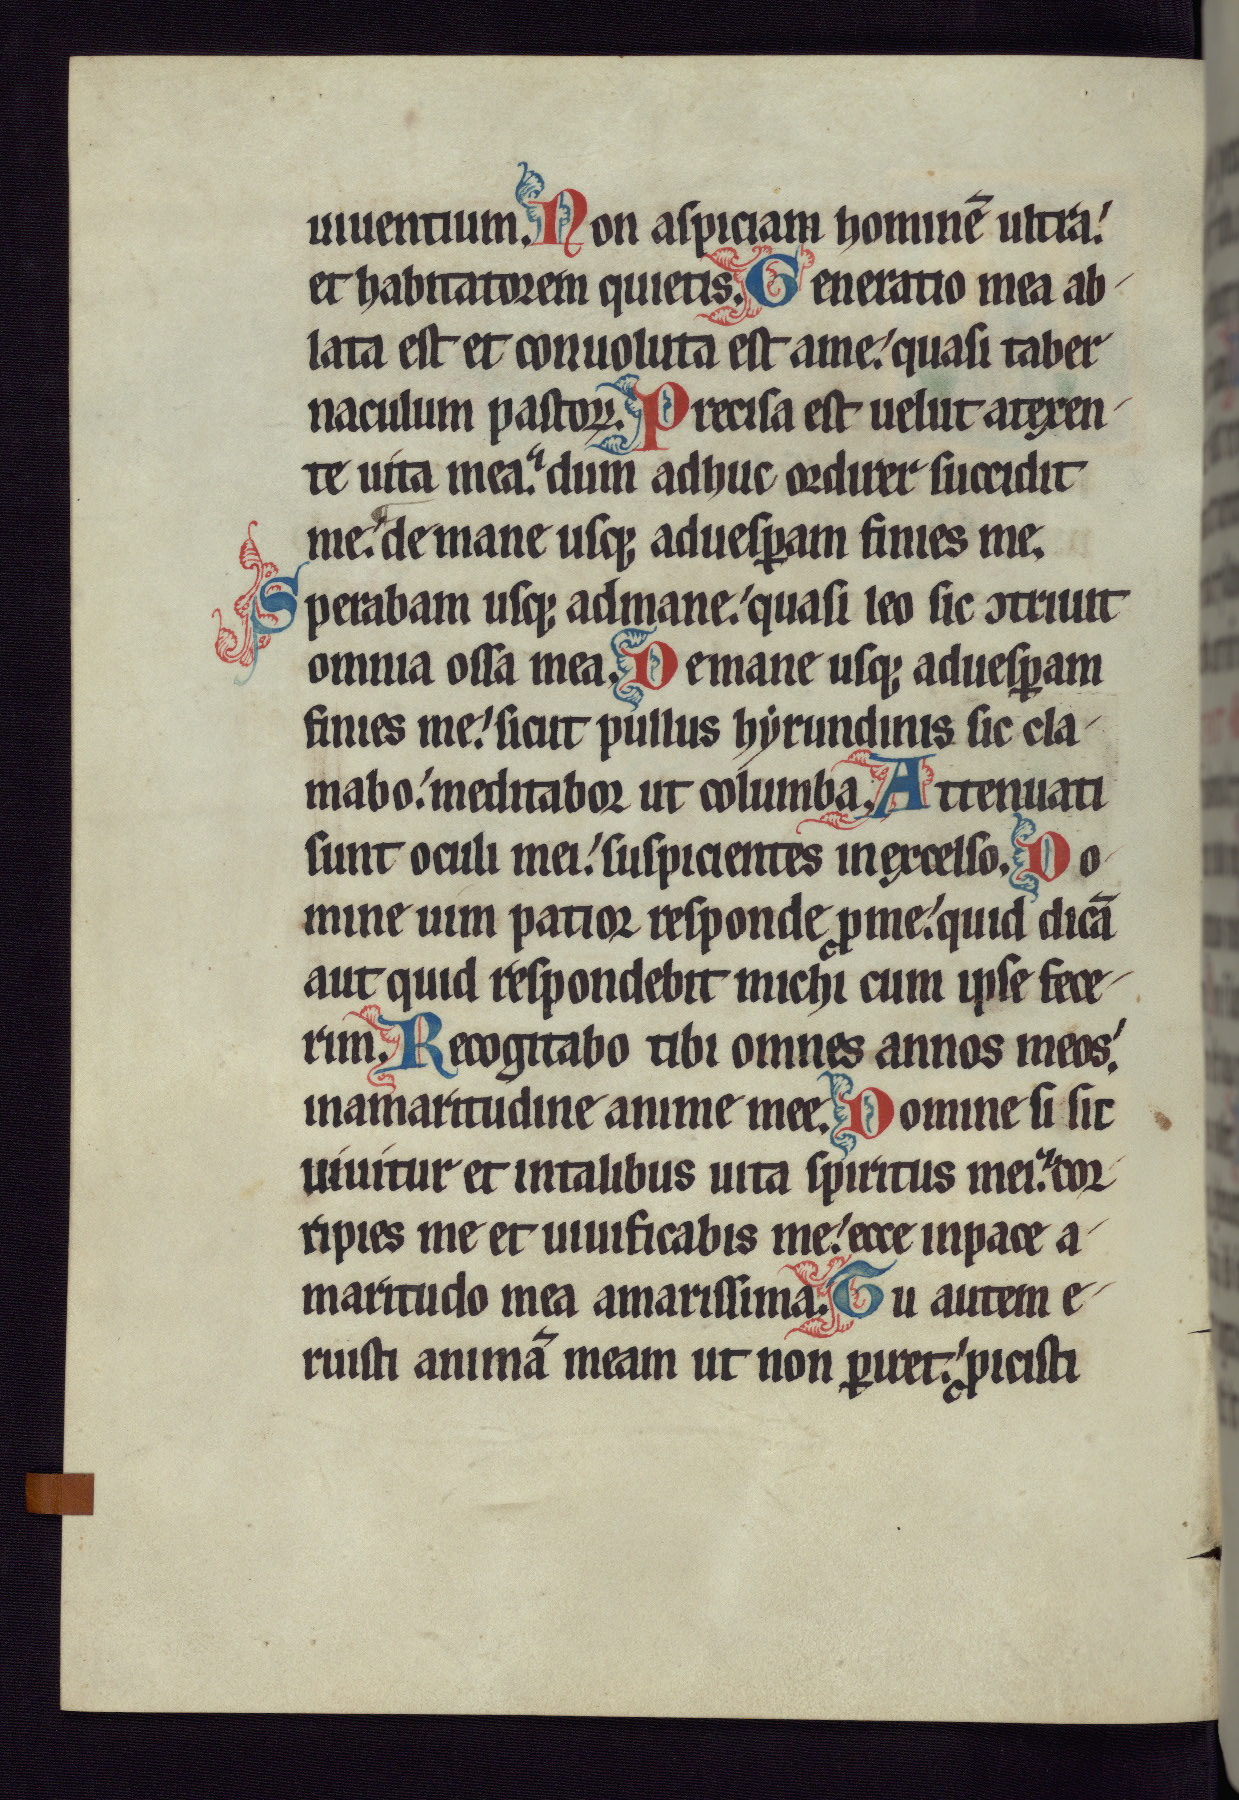 uiuentium. Non aspiciam hominē ultra:
et habitatorem quietis. Generatio mea ab-
lata est et conuoluta est ame: quasi taber
naculum pastoꝝ. Precisa est uelut atexen-
te uita mea: dum adhuc ordirer succidit
me: de mane usq; aduesꝑam finies me.
Sperabam usq; admane: quasi leo sic ↄtriuit
omnia ossa mea. De mane usq; aduesꝑam
finies me: sicut pullus hẏrundinis sic cla-
mabo: meditabor ut columba. Attenuati
sunt oculi mei: suspicientes inexcelso. Do-
mine uim patior responde ꝓme: quid dicā
aut quid respondebit michi cum ipse fece-
rim. Recogitabo tibi omnes annos meos:
inamaritudine anime mee. Domine si sic
uiuitur et intalibus uita spiritus mei: cor-
ripies me et uiuificabis me: ecce inpace a-
maritudo mea amarissima. Tu autem e-
ruisti animā meam ut non ꝑiret: ꝓicisti